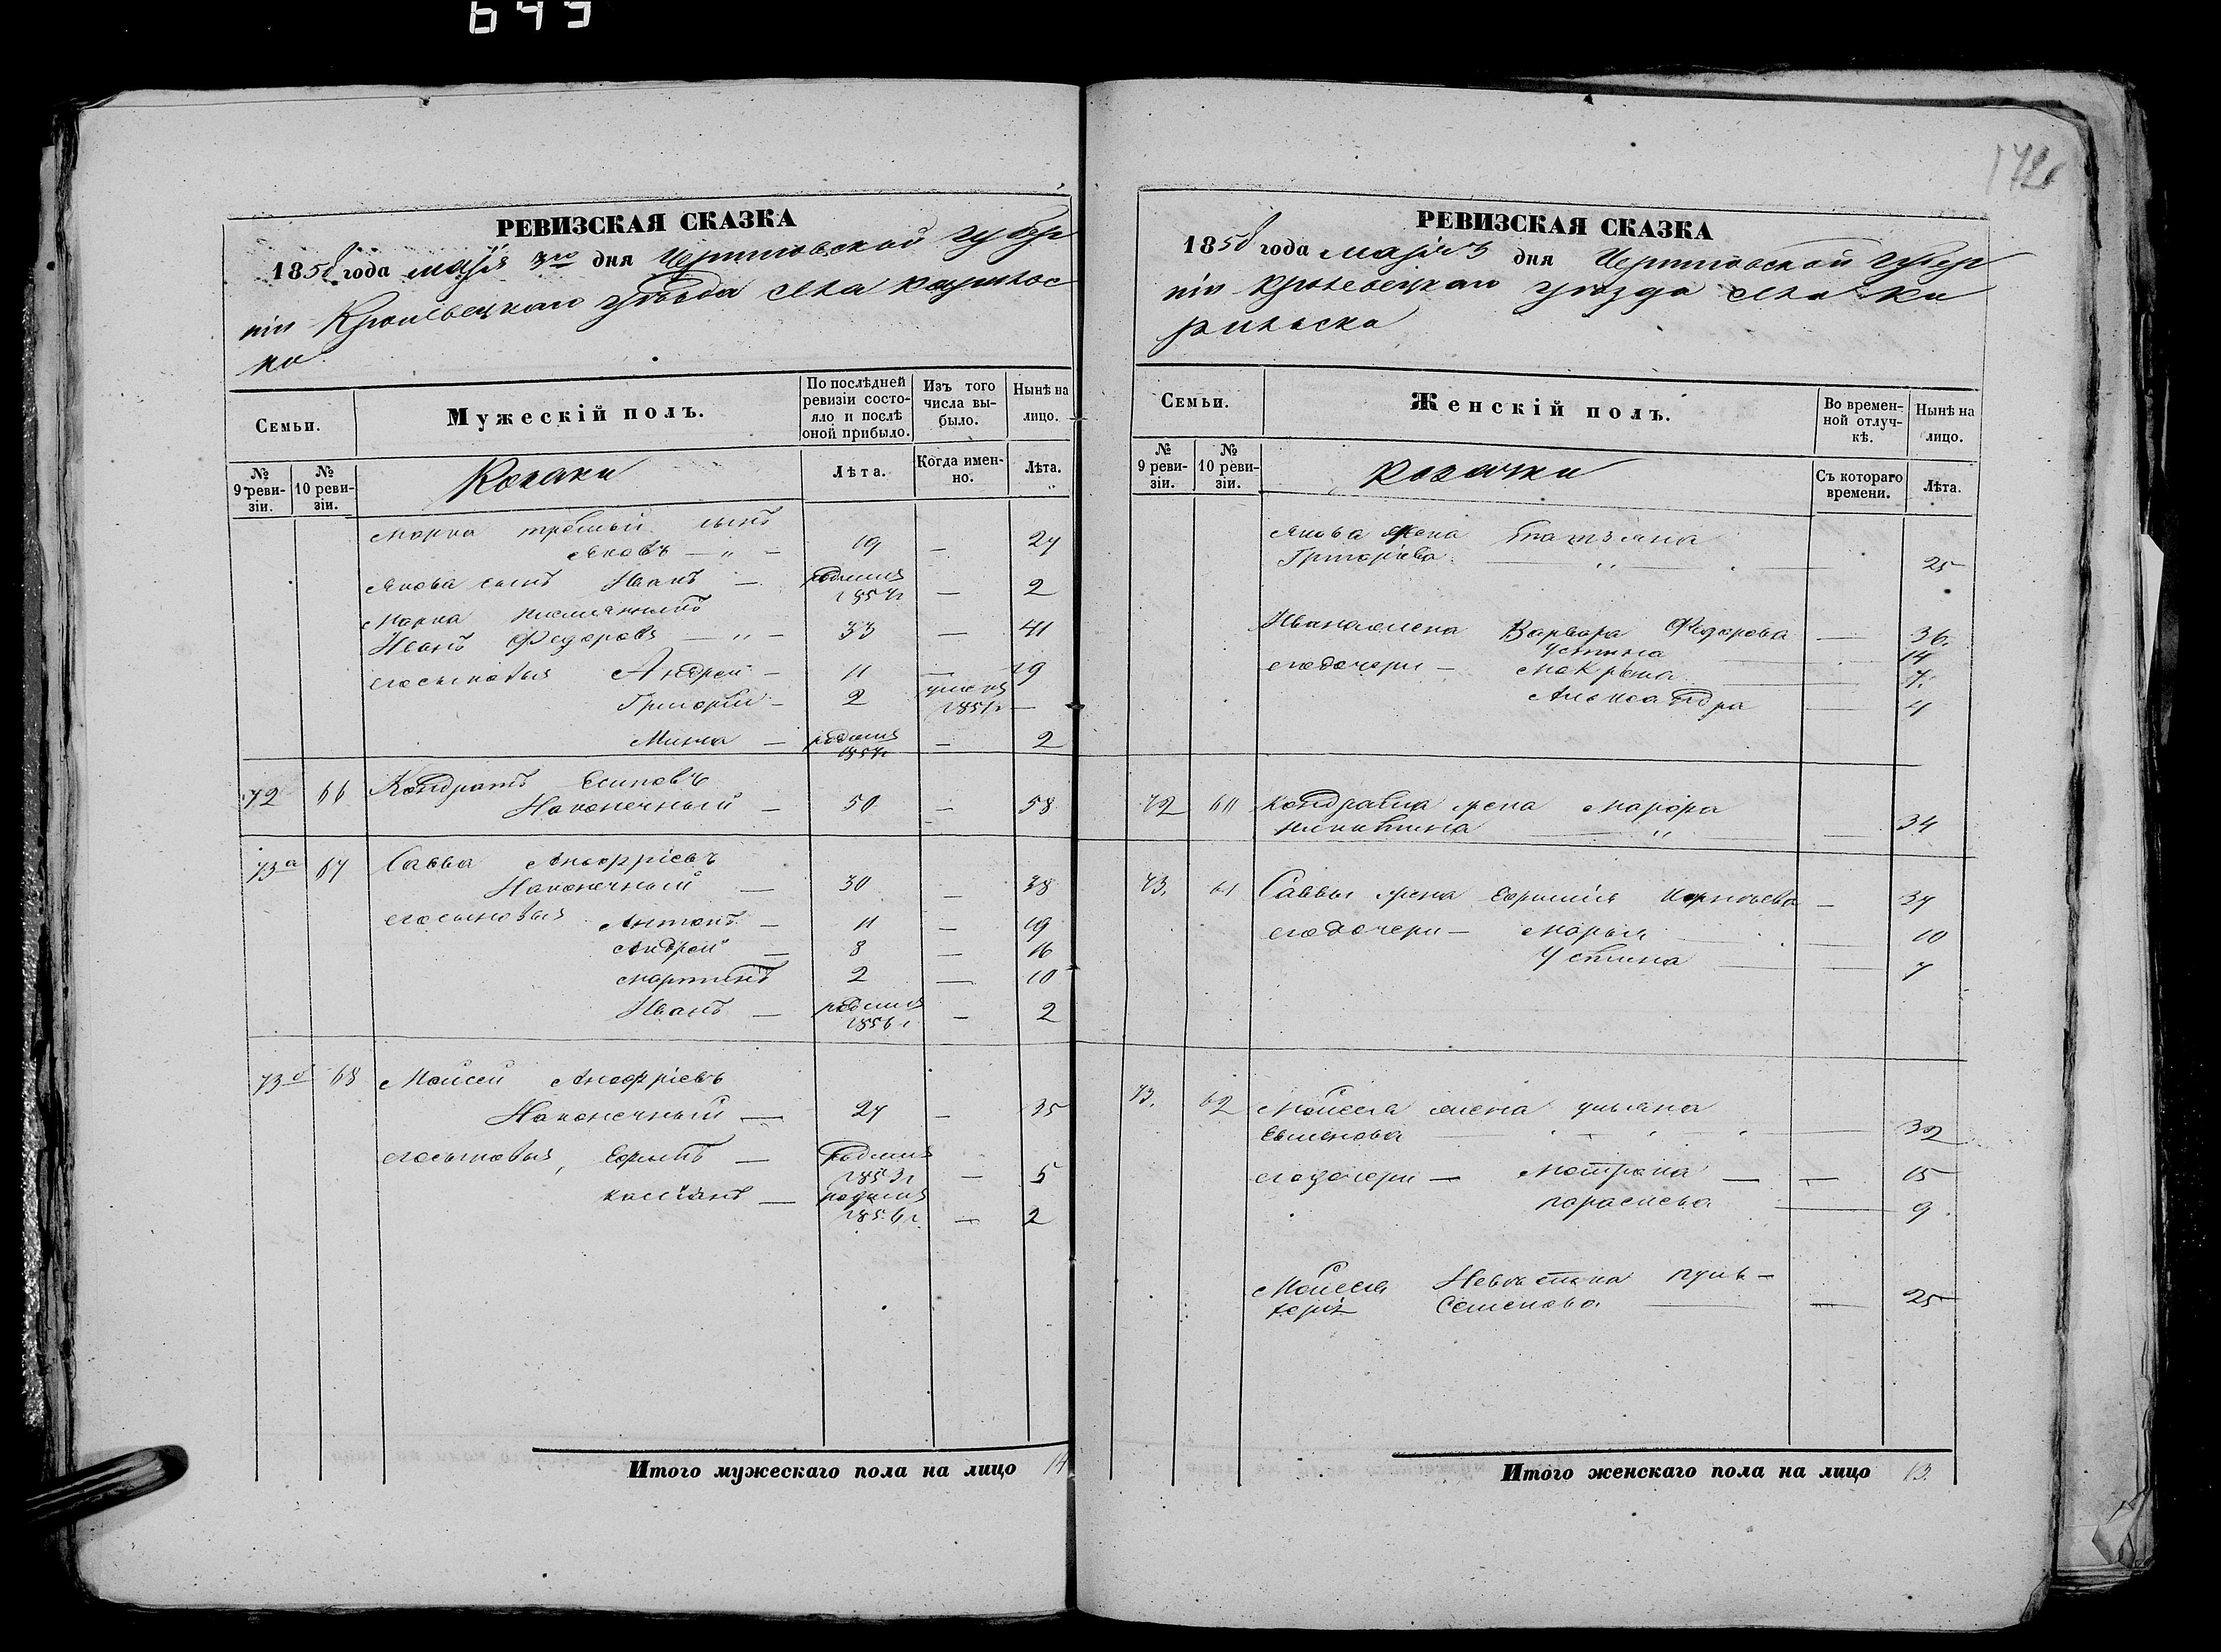 649
РЕВИЗСКАЯ СКАЗКА
1858 года маія 3го дня Черниговской губер
ніи Кролевецкаго уѣзда села
Семьи.
Мужескій полъ.
По послѣдней ревизіи состояло и послѣ оной прибыло.
Изъ того числа выбыло.
Нынѣ на лицо.
№ 9 ревизіи.
№ 10 ревизіи.
Козаки
Лѣта.
Когда именно.
Лѣта.
Марка третий сынъ
Яковъ — „ — 19 — 27
Якова сынъ Иванъ — родился 1857г — 2
Марка племянникъ
Иванъ Федоровъ — „ — 33 — 41
его сыновья Андрей — 11 — 19
Григорій — 2 умеръ 1851г —
Мина — родился 1857г — 2
72 66 Кондратъ Есиповъ
Наконечный — 50 — 58
73а 67 Савва Аноффріевъ
Наконечный — 30 — 38
его сыновья Антонъ — 11 — 19
Андрей — 8 — 16
Мартинъ 2 — 10
Иванъ — родился 1856г — 2
73б 68 Моисей Аноффріевъ
Наконечный — 27 — 35
его сыновья, Ефимъ — родился 1853г — 5
Касіянъ — родился 1856г — 2
Итого мужескаго пола на лицо 14
172
РЕВИЗСКАЯ СКАЗКА
1858 года маія 3 дня Черниговской губер
ніи Кролевецкаго уѣзда села Ка
Семьи.
Женскій полъ.
Во временной отлучкѣ.
Нынѣ на лицо.
№ 9 ревизіи.
№ 10 ревизіи.
Козачки
Съ котораго времени.
Лѣта.
Якова жена Татіяна
Григоріева — „ — 25
Ивана жена Варвара Федорова — 36.
Устина 14
его дочери — Макрина — 7.
Александра — 4
72 60 Кондратія жена Марфа
Никитина — „ 34
73. 61 Саввы жена Ефимія Корнѣева — 37
его дочери — Марья — 10
Устина — 7
73. 62 Моисея жена Ульяна
Евменова — 32
его дочери — Мотрона — — 15
Параскева — 9
Моисея Невѣстка Пуль-
херія Семенова — — 25
Итого женскаго пола на лицо 13.